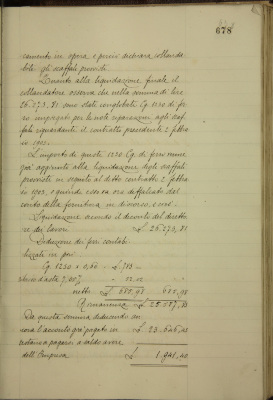 678
camento in opera e perciò dichiara collauda-
bili gli scaffali forniti.
Quanto alla liquidazione finale il
collaudatore osserva che nella somma di lire
26.273,81 sono stati conglobati Cg. 1230 di fer-
ro impiegati per le note riparazioni agli scaf-
fali riguardanti il contratto precedente 2 febbraio
1903.
L'importo di questi 1230 Cg. di ferro venne
già aggiunto alla liquidazione degli scaffali
provvisti in seguito al detto contratto 2 febbraio
1903, e quindi essa va ora diffalcato dal
conto della fornitura in discorso, come
Liquidazione secondo il deconto del diretto-
re dei lavori £ 26.273,81
Deduzione di ferri contabi-
lizzati in più
Cg. 1230 x 0,60 = £ 738
ribasso d'asta 7
netto £ 680,98 680,98
Rimanenza £
Da questa somma deducendo an-
cora l'acconto già pagato in £ 23.646,43
restano a pagarsi a saldo avere
dell'Impresa £ 1.941,40